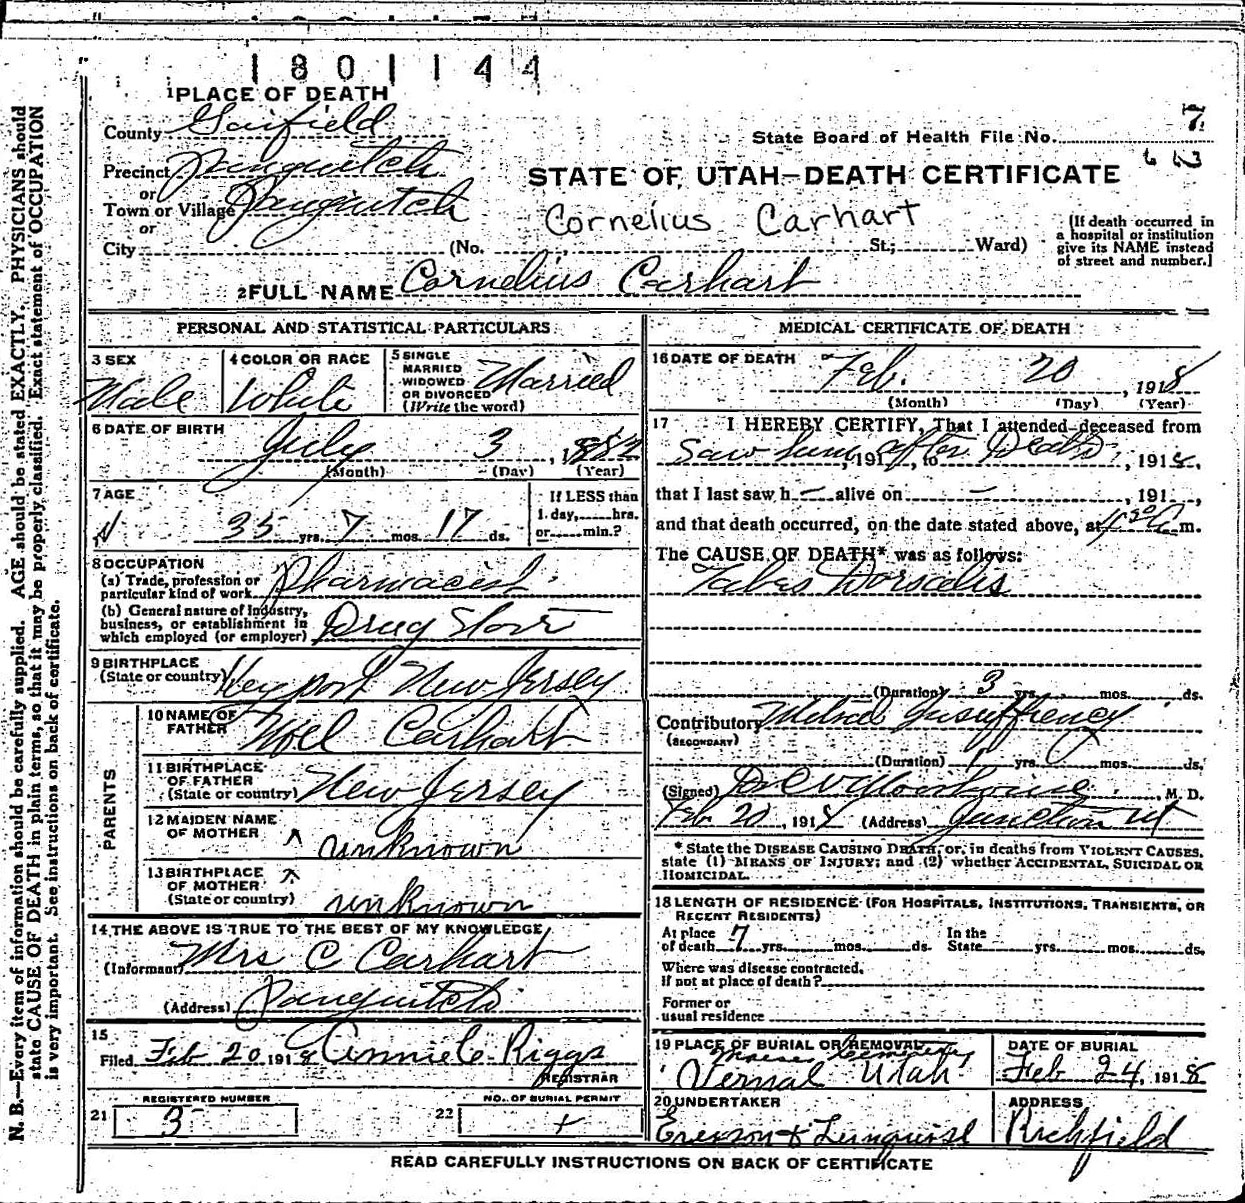 1801144
1 PLACE OF DEATH
County Garfield
State Board of Health File No. 7
Precinct Panguitch
or
Town or Village Panguitch
or
City (No. St.; Ward)
STATE OF UTAH—DEATH CERTIFICATE
Cornelius Carhart
(If death occurred in
a hospital or institution
give its NAME instead
of street and number.]
2 FULL NAME Cornelius Carhart
PERSONAL AND STATISTICAL PARTICULARS
3 SEX
Male
4 COLOR OR RACE
White
5 SINGLE
MARRIED
WIDOWED
OR DIVORCED
(Write the word)
Married
6 DATE OF BIRTH
July 3, 1882
(Month) (Day) (Year)
7 AGE
35 yrs. 7 mos. 17 ds.
If LESS than
1 day, hrs.
or min.?
8 OCCUPATION
(a) Trade, profession or
particular kind of work Pharmacist
(b) General nature of industry,
business, or establishment in
which employed (or employer) Drug Store
9 BIRTHPLACE
(State or country) Keyport New Jersey
PARENTS
10 NAME OF
FATHER Noel Carhart
11 BIRTHPLACE
OF FATHER
(State or country) New Jersey
12 MAIDEN NAME
OF MOTHER unknown
13 BIRTHPLACE
OF MOTHER
(State or country) unknown
14 THE ABOVE IS TRUE TO THE BEST OF MY KNOWLEDGE
(Informant) Mrs C Carhart
(Address) Panguitch
15
Filed Feb 20 1918 Annie C Riggs
REGISTRAR
21 REGISTERED NUMBER
3
22 NO. OF BURIAL PERMIT
MEDICAL CERTIFICATE OF DEATH
16 DATE OF DEATH
Feb. 20, 1918
(Month) (Day) (Year)
17 I HEREBY CERTIFY, That I attended deceased from
Saw him, 191 after, to Death, 1918,
that I last saw h — alive on —, 191 ,
and that death occurred, on the date stated above, at m.
The CAUSE OF DEATH* was as follows:
Tabes Dorsalis
(Duration) 3 yrs. mos. ds.
Contributory Mitral Insuffiency
(SECONDARY)
(Duration) 1 yrs. mos. ds.
(Signed) M. D.
Feb 20, 1918 (Address) Junction Ut
* State the DISEASE CAUSING DEATH, or, in deaths from VIOLENT CAUSES,
state (1) MEANS OF INJURY; and (2) whether ACCIDENTAL, SUICIDAL OR
HOMICIDAL.
18 LENGTH OF RESIDENCE (FOR HOSPITALS, INSTITUTIONS, TRANSIENTS, OR
RECENT RESIDENTS)
At place
of death 7 yrs. mos. ds. In the
State yrs. mos. ds.
Where was disease contracted,
If not at place of death?
Former or
usual residence
19 PLACE OF BURIAL OR REMOVAL
Cemetery
Vernal Utah
DATE OF BURIAL
Feb 24, 1918
20 UNDERTAKER
ADDRESS
Richfield
READ CAREFULLY INSTRUCTIONS ON BACK OF CERTIFICATE
N. B.—Every item of information should be carefully supplied. AGE should be stated EXACTLY. PHYSICIANS should
state CAUSE OF DEATH in plain terms, so that it may be properly classified. Exact statement of OCCUPATION
is very important. See instructions on back of certificate.